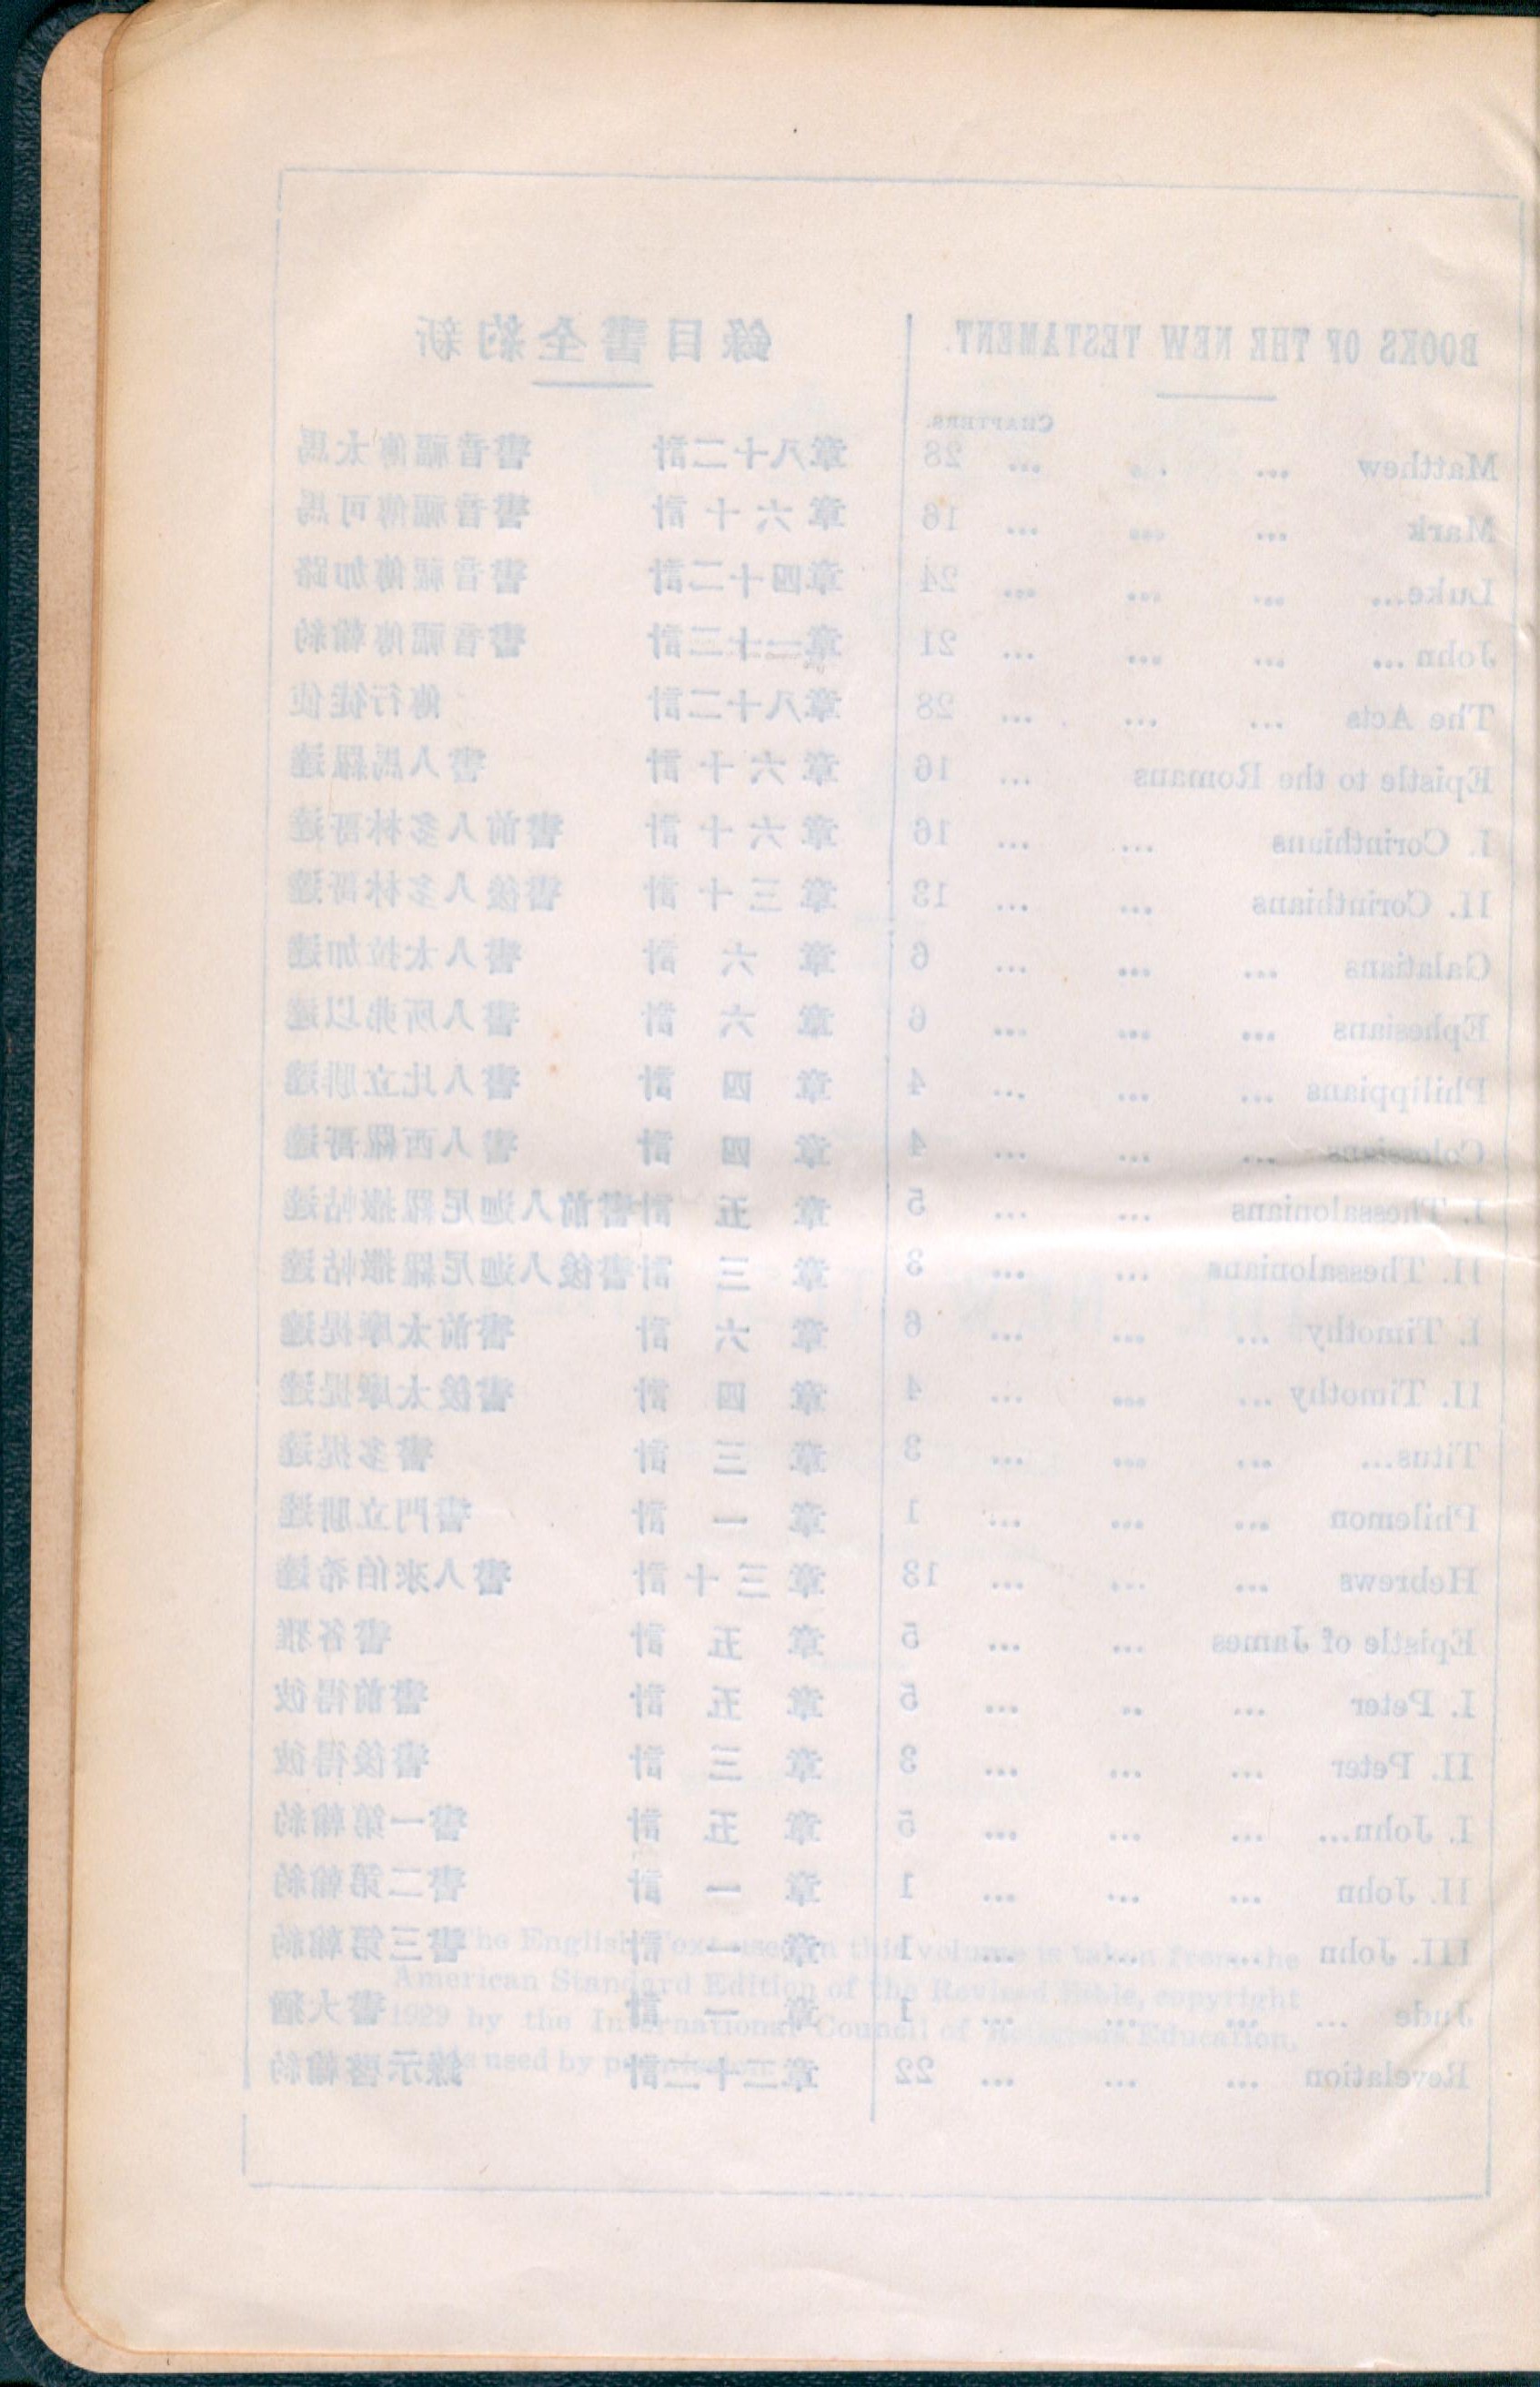 BOOKS OF THE NEW TESTAMENT.
新約全書目錄
CHAPTERS.
Matthew ... ... ... 28 馬太傳福音書 計二十八章
Mark ... ... ... 16 馬可傳福音書 計十六章
Luke... ... ... ... 24 路加傳福音書 計二十四章
John ... ... ... ... 21 約翰傳福音書 計二十一章
The Acts ... ... ... 28 使徒行傳 計二十八章
Epistle to the Romans ... 16 達羅馬人書 計十六章
I. Corinthians ... ... 16 達哥林多人前書 計十六章
II. Corinthians ... ... 13 達哥林多人後書 計十三章
Galatians ... ... ... 6 達加拉太人書 計六章
Ephesians ... ... ... 6 達以弗所人書 計六章
Philippians ... ... ... 4 達腓立比人書 計四章
Colossians ... ... ... 4 達哥羅西人書 計四章
I. Thessalonians ... ... 5 達帖撒羅尼迦人前書 計五章
II. Thessalonians ... ... 3 達帖撒羅尼迦人後書 計三章
I. Timothy ... ... ... 6 達提摩太前書 計六章
II. Timothy ... ... ... 4 達提摩太後書 計四章
Titus... ... ... ... 3 達提多書 計三章
Philemon ... ... ... 1 達腓立門書 計一章
Hebrews ... ... ... 13 達希伯來人書 計十三章
Epistle of James ... ... 5 雅各書 計五章
I. Peter ... .. ... 5 彼得前書 計五章
II. Peter ... ... ... 3 彼得後書 計三章
I. John... ... ... ... 5 約翰第一書 計五章
II. John ... ... ... 1 約翰第二書 計一章
III. John ... ... ... 1 約翰第三書 計一章
Jude ... ... ... ... 1 猶大書 計一章
Revelation ... ... ... 22 約翰啓示錄 計二十二章
The English Text used in this volume is taken from the
American Standard Edition of the Revised Bible, copyright
1929 by the International Council of Religious Education,
is used by permission.